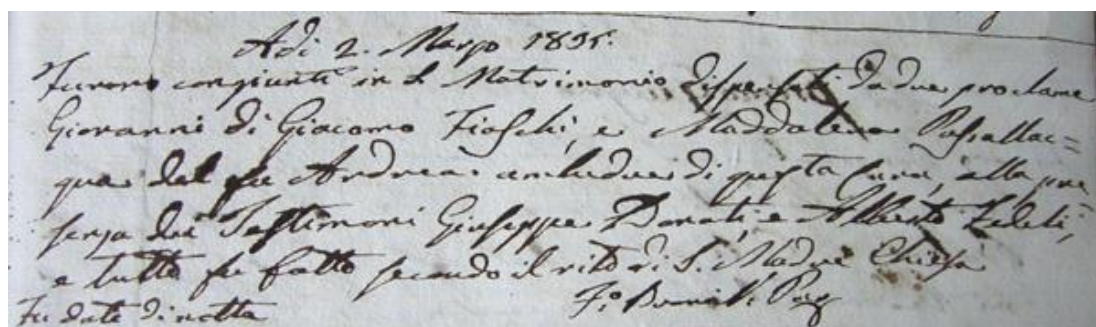 Adi 2. Marzo 1835.
Furono congiunti in S. Matrimonio dispensati da due proclame
Giovanni di Giacomo Fiaschi, e Maddalena Passallac=
qua del fu Andrea ambedue di questa Cura, alla pre
senza dei Testimoni Giuseppe Donati, e Alberto Fedeli,
e tutto fu fatto secondo il rito di S. Madre Chiesa
Fu data di notta